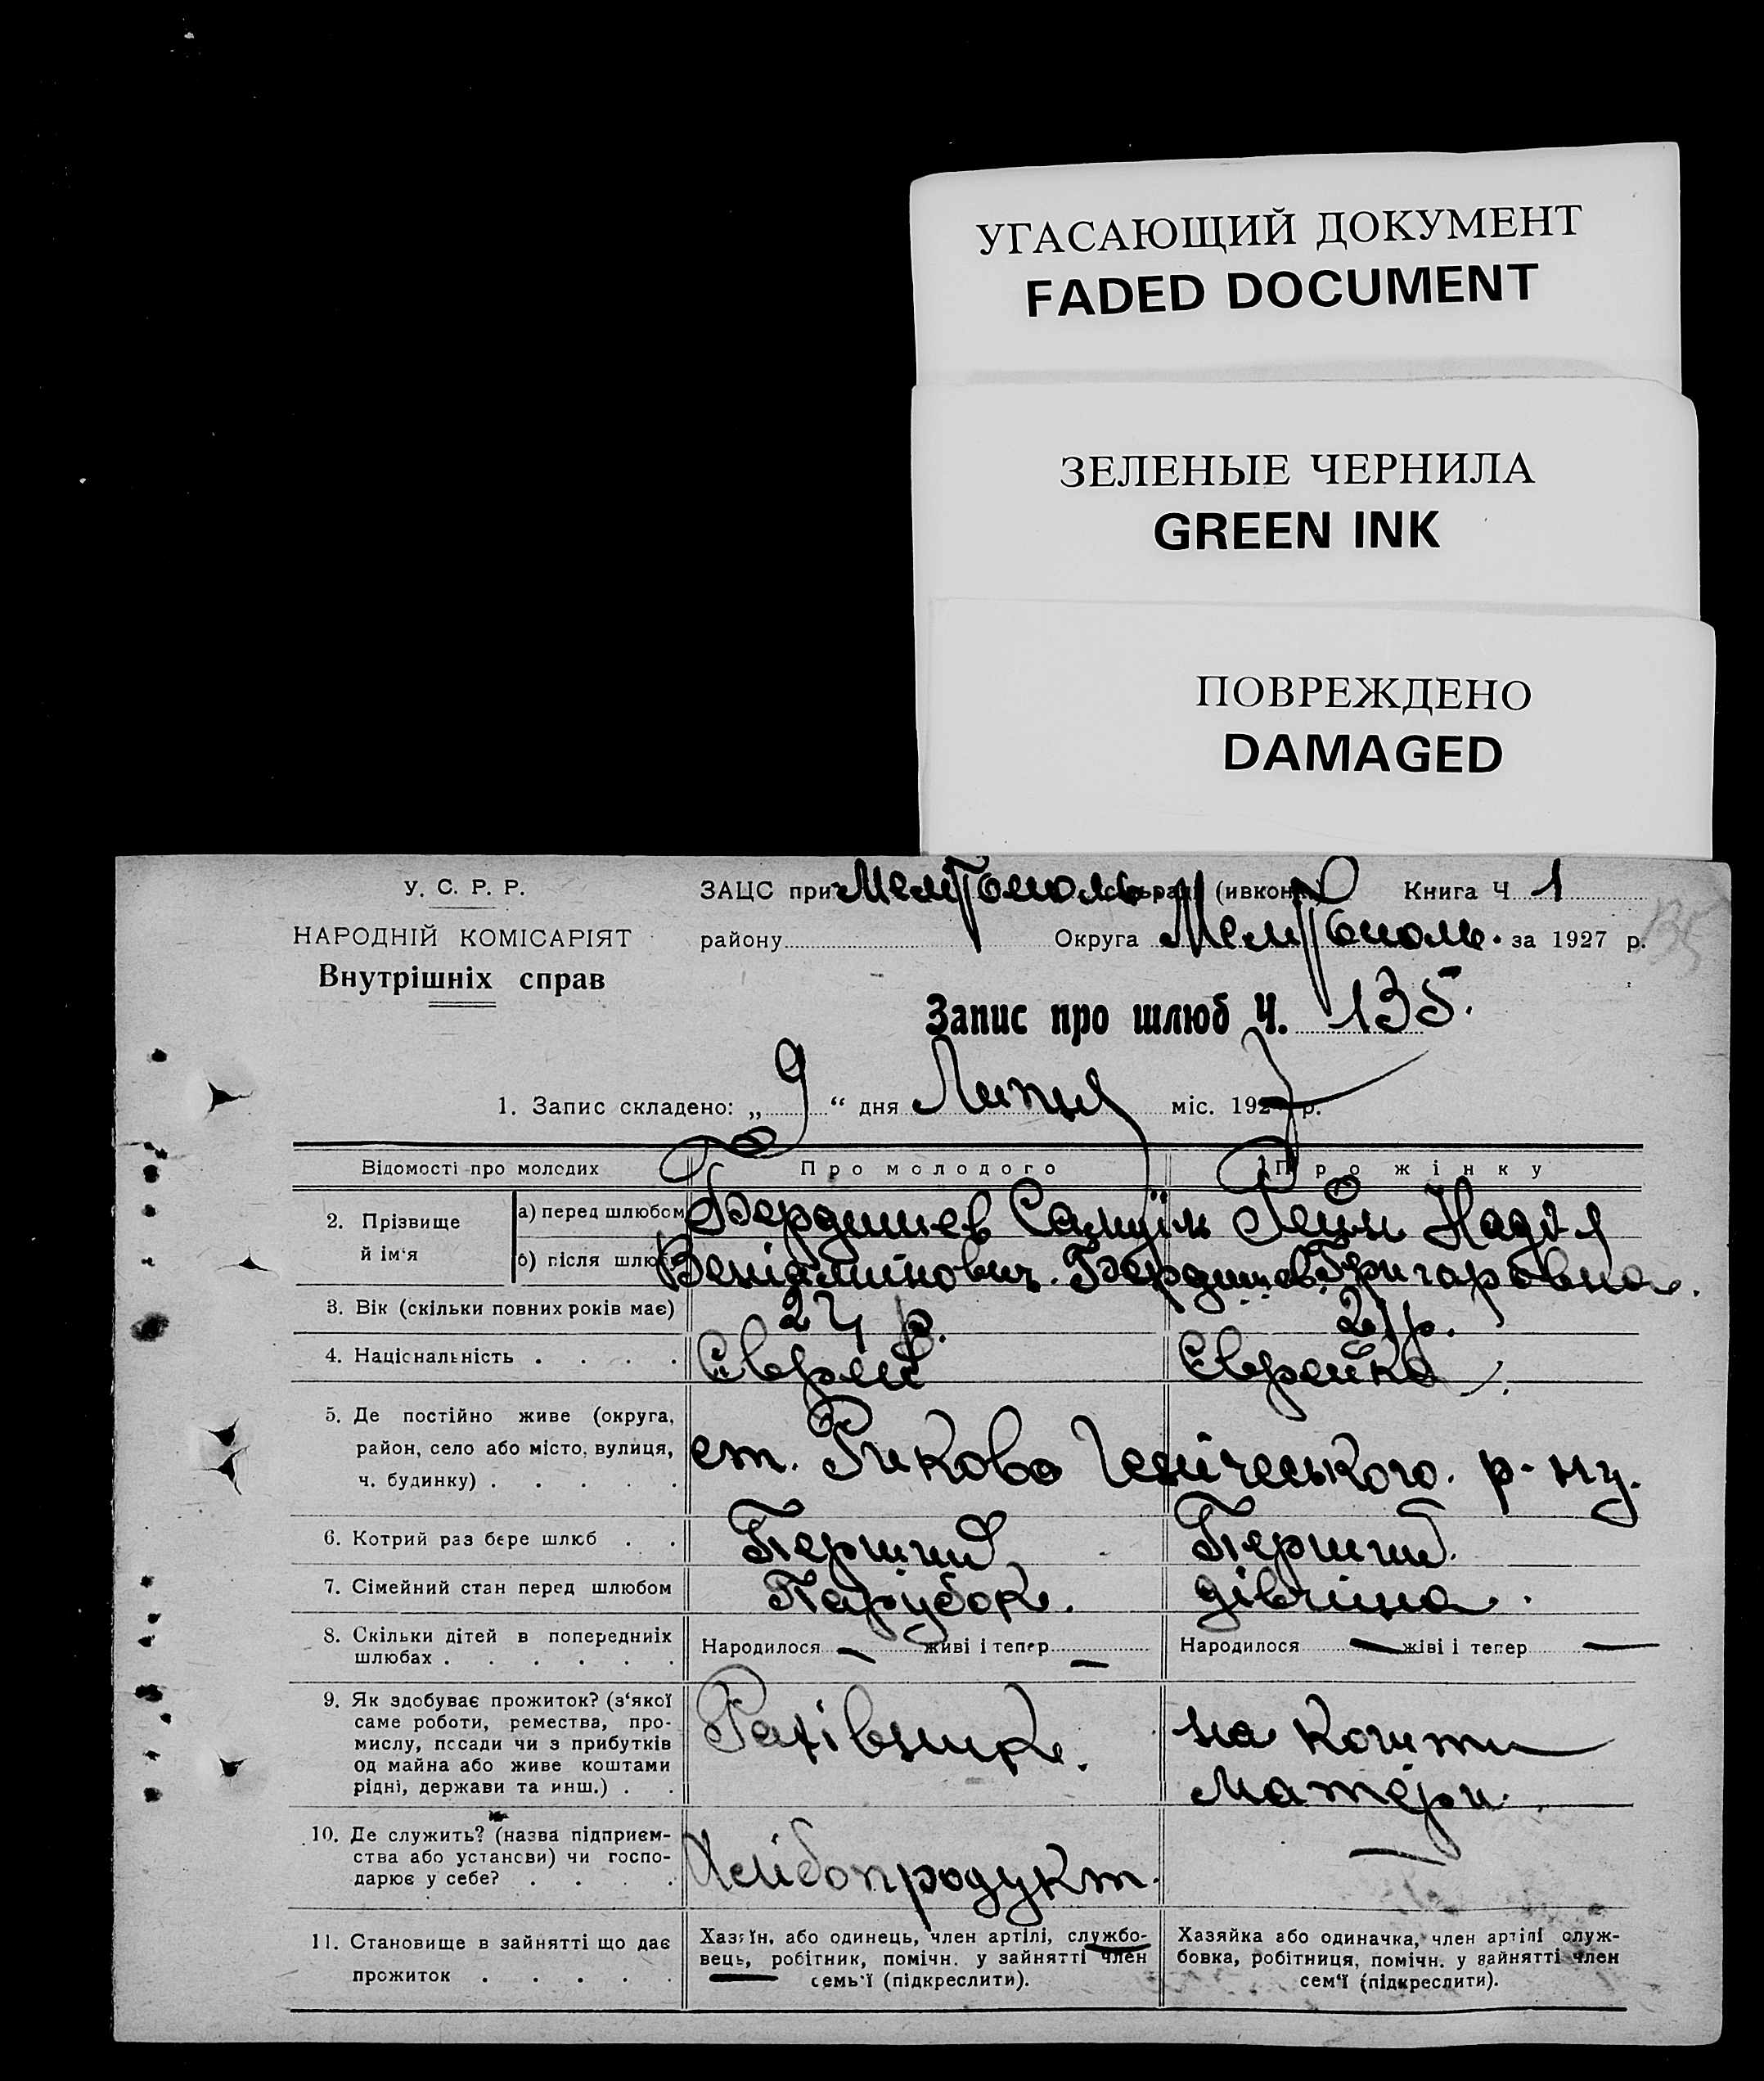 УГАСАЮЩИЙ ДОКУМЕНТ
FADED DOCUMENT
ЗЕЛЕНЫЕ ЧЕРНИЛА
GREEN INK
ПОВРЕЖДЕНО
DAMAGED
У. С. Р. Р.
НАРОДНІЙ КОМІСАРІЯТ
Внутрішніх справ
ЗАЦС при Мелітополь. (ивкон Книга Ч 1
району Округа Мелітополь. за 1927 р.
135
Запис про шлюб Ч. 135.
1. Запис складено: „ 9 “ дня Липня міс. 1927 р.
Відомості про молодих Про молодого Про жінку
2. Прізвище й ім‘я
а) перед шлюбом Бердишев Самуїл Рейн Надія
б) після шлюб Веніяминович. Бердишев Григоровна.
3. Вік (скільки повних років має) 24 р. 21 р.
4. Національність . . . . Єврей Єврейка
5. Де постійно живе (округа,
район, село або місто, вулиця,
ч. будинку) . . . . .
ст. Риково Генічеського р-ну.
6. Котрий раз бере шлюб . . Перший Перший.
7. Сімейний стан перед шлюбом Парубок. дівчина.
8. Скільки дітей в попередниіх
шлюбах . . . . . .
Народилося — живі і тепер — Народилося — жіві і тепер —
9. Як здобуває прожиток? (з‘якої
саме роботи, ремества, про-
мислу, посади чи з прибутків
од майна або живе коштами
рідні, держави та инш.) . .
на кошти
матери.
10. Де служить? (назва підприєм-
ства або установи) чи госпо-
дарює у себе? . . . .
Хлібопродукт. —
11. Становище в зайнятті що дає
прожиток . . . . .
Хазяїн, або одинець, член артілі, службо-
вець, робітник, помічн. у зайнятті член
семь‘ї (підкреслити).
Хазяйка або одиначка, член артілі служ-
бовка, робітниця, помічн. у зайнятті член
сем‘ї (підкреслити).